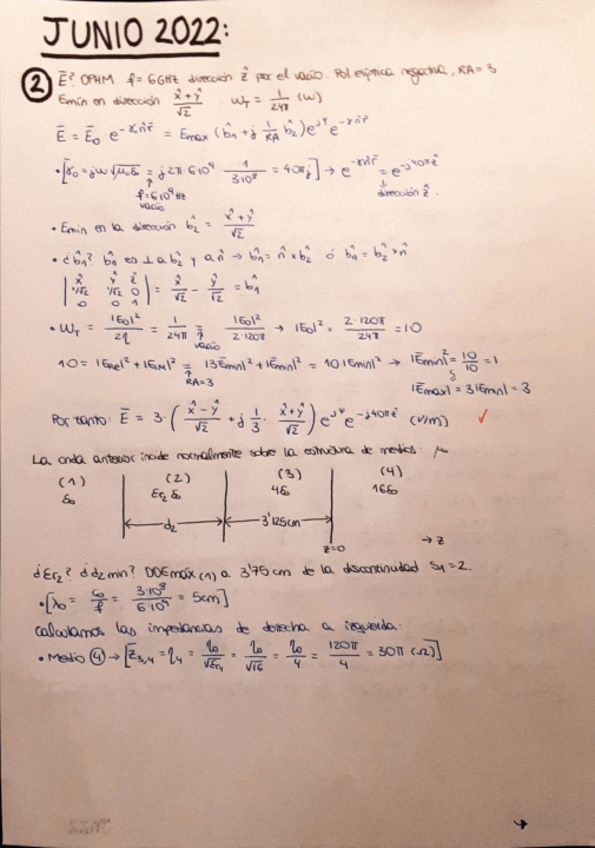 JUNIO 2022:
② Ē? OPHM f= 6GHz dirección ẑ por el vacío. Pol elíptica negativa, RA=3
Emín en dirección (x̂+ŷ)/√2 . W_T = 1/24π (W)
Ē = Ē₀ e^(-γ₀n̂r̄) = Emax (b̂₁ + j 1/RA b̂₂) e^(jφ) e^(-γn̂r̄)
• [γ₀ = jω√μ₀ε₀ = j2π·6·10⁹ · 1/(3·10⁸) = 40πj] → e^(-γn̂r̄) = e^(-j40πẑ)
f=6·10⁹ Hz vacío dirección ẑ.
• Emin en la dirección b̂₂ = (x̂+ŷ)/√2
• ¿b̂₁? b̂₁ es ⊥ a b̂₂ y a n̂ → b̂₁ = n̂×b̂₂ ó b̂₁ = b̂₂×n̂
| x̂ ŷ ẑ |
| 1/√2 1/√2 0 | = x̂/√2 - ŷ/√2 = b̂₁
| 0 0 1 |
• W_T = |E₀|²/2η = 1/24π = |E₀|²/(2·120π) → |E₀|² = 2·120π/24π = 10
vacío
10 = |E_RE|² + |E_IM|² = |3Emin|² + |Emin|² = 10|Emin|² → |Emin|² = 10/10 = 1
RA=3 |Emax| = 3|Emin| = 3
Por tanto: Ē = 3·( (x̂-ŷ)/√2 + j 1/3 · (x̂+ŷ)/√2 ) e^(jφ) e^(-j40πẑ) (V/m) ✓
La onda anterior incide normalmente sobre la estructura de medios: μ₀
(1) (2) (3) (4)
ε₀ εr₂ ε₀ 4ε₀ 16ε₀
d₂ 3'125cm
z=0 → z
¿εr₂? ¿d₂min? DDEmáx(1) a 3'75 cm de la discontinuidad S₁=2.
• [λ₀ = c₀/f = 3·10⁸/6·10⁹ = 5cm]
calculamos las impedancias de derecha a izquierda:
• Medio ④ → [Z₃,₄ = η₄ = η₀/√εr₄ = η₀/√16 = η₀/4 = 120π/4 = 30π (Ω)]